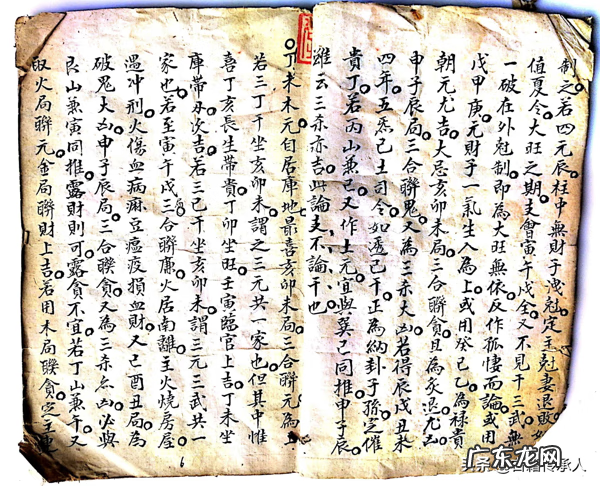 制之若四元辰柱中無財子洩尅定主尅妻退敗如
值夏令大旺之期支會寅午戌全又不見干三武無
一破在外尅制即為大旺無依反作孤悽而論或用
戊甲庚元財子一氣生入為上或用癸巳乙為祿貴
朝元尤吉大忌亥卯未局三合聯貪且為炙退尤凶
申子辰局三合聯鬼又為三杀大凶若得辰戌丑未
四年五炁己土司令如透己干正為納卦子孫之催
貴丁若丙山兼巳又作土元宜與巽巳同推申子辰
雖云三杀亦吉此論支不論干也
丁未木元自居庫地最喜亥卯未局三合聯元為
若三丁干坐亥卯未謂之三元共一家也但其中惟
喜丁亥長生帶貴丁卯坐旺壬寅臨官上吉丁未坐
庫帶刃次吉若三己干坐亥卯未謂三元三武共一
家也若至寅午戌三合聯廉火居南離主火燒房屋
遇冲刑火傷血病麻豆瘟疫損血財又巳酉丑局為
破鬼大凶申子辰局三合聯貪又為三杀名凶必與
艮山兼寅同推露財則可露貪不宜若丁山兼午又
取火局聯元金局聯財上吉若用木局聯貪定主連
6
头条@古籍传承人
广东龙网